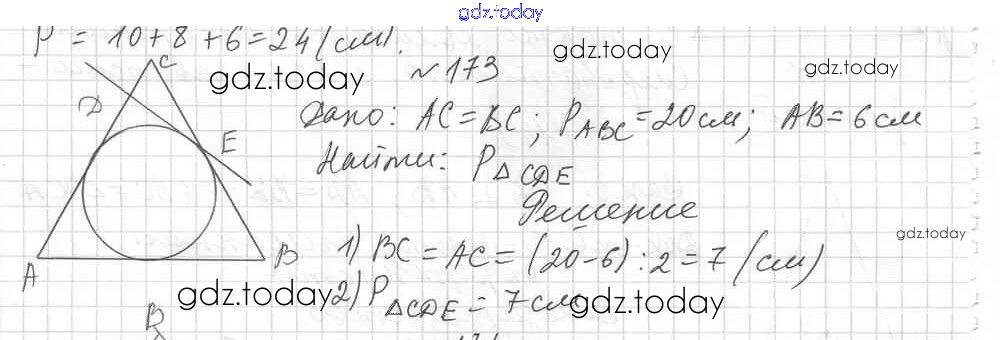 gdz.today
P = 10+8+6=24(см).
gdz.today
gdz.today
gdz.today
№173
C
D
E
Дано: AC=BC; P_ABC=20см; AB=6см
Найти: P_△CDE
Решение
gdz.today
1) BC = AC = (20-6):2=7(см)
A
B
gdz.today
2) P_△CDE = 7см
gdz.today
B